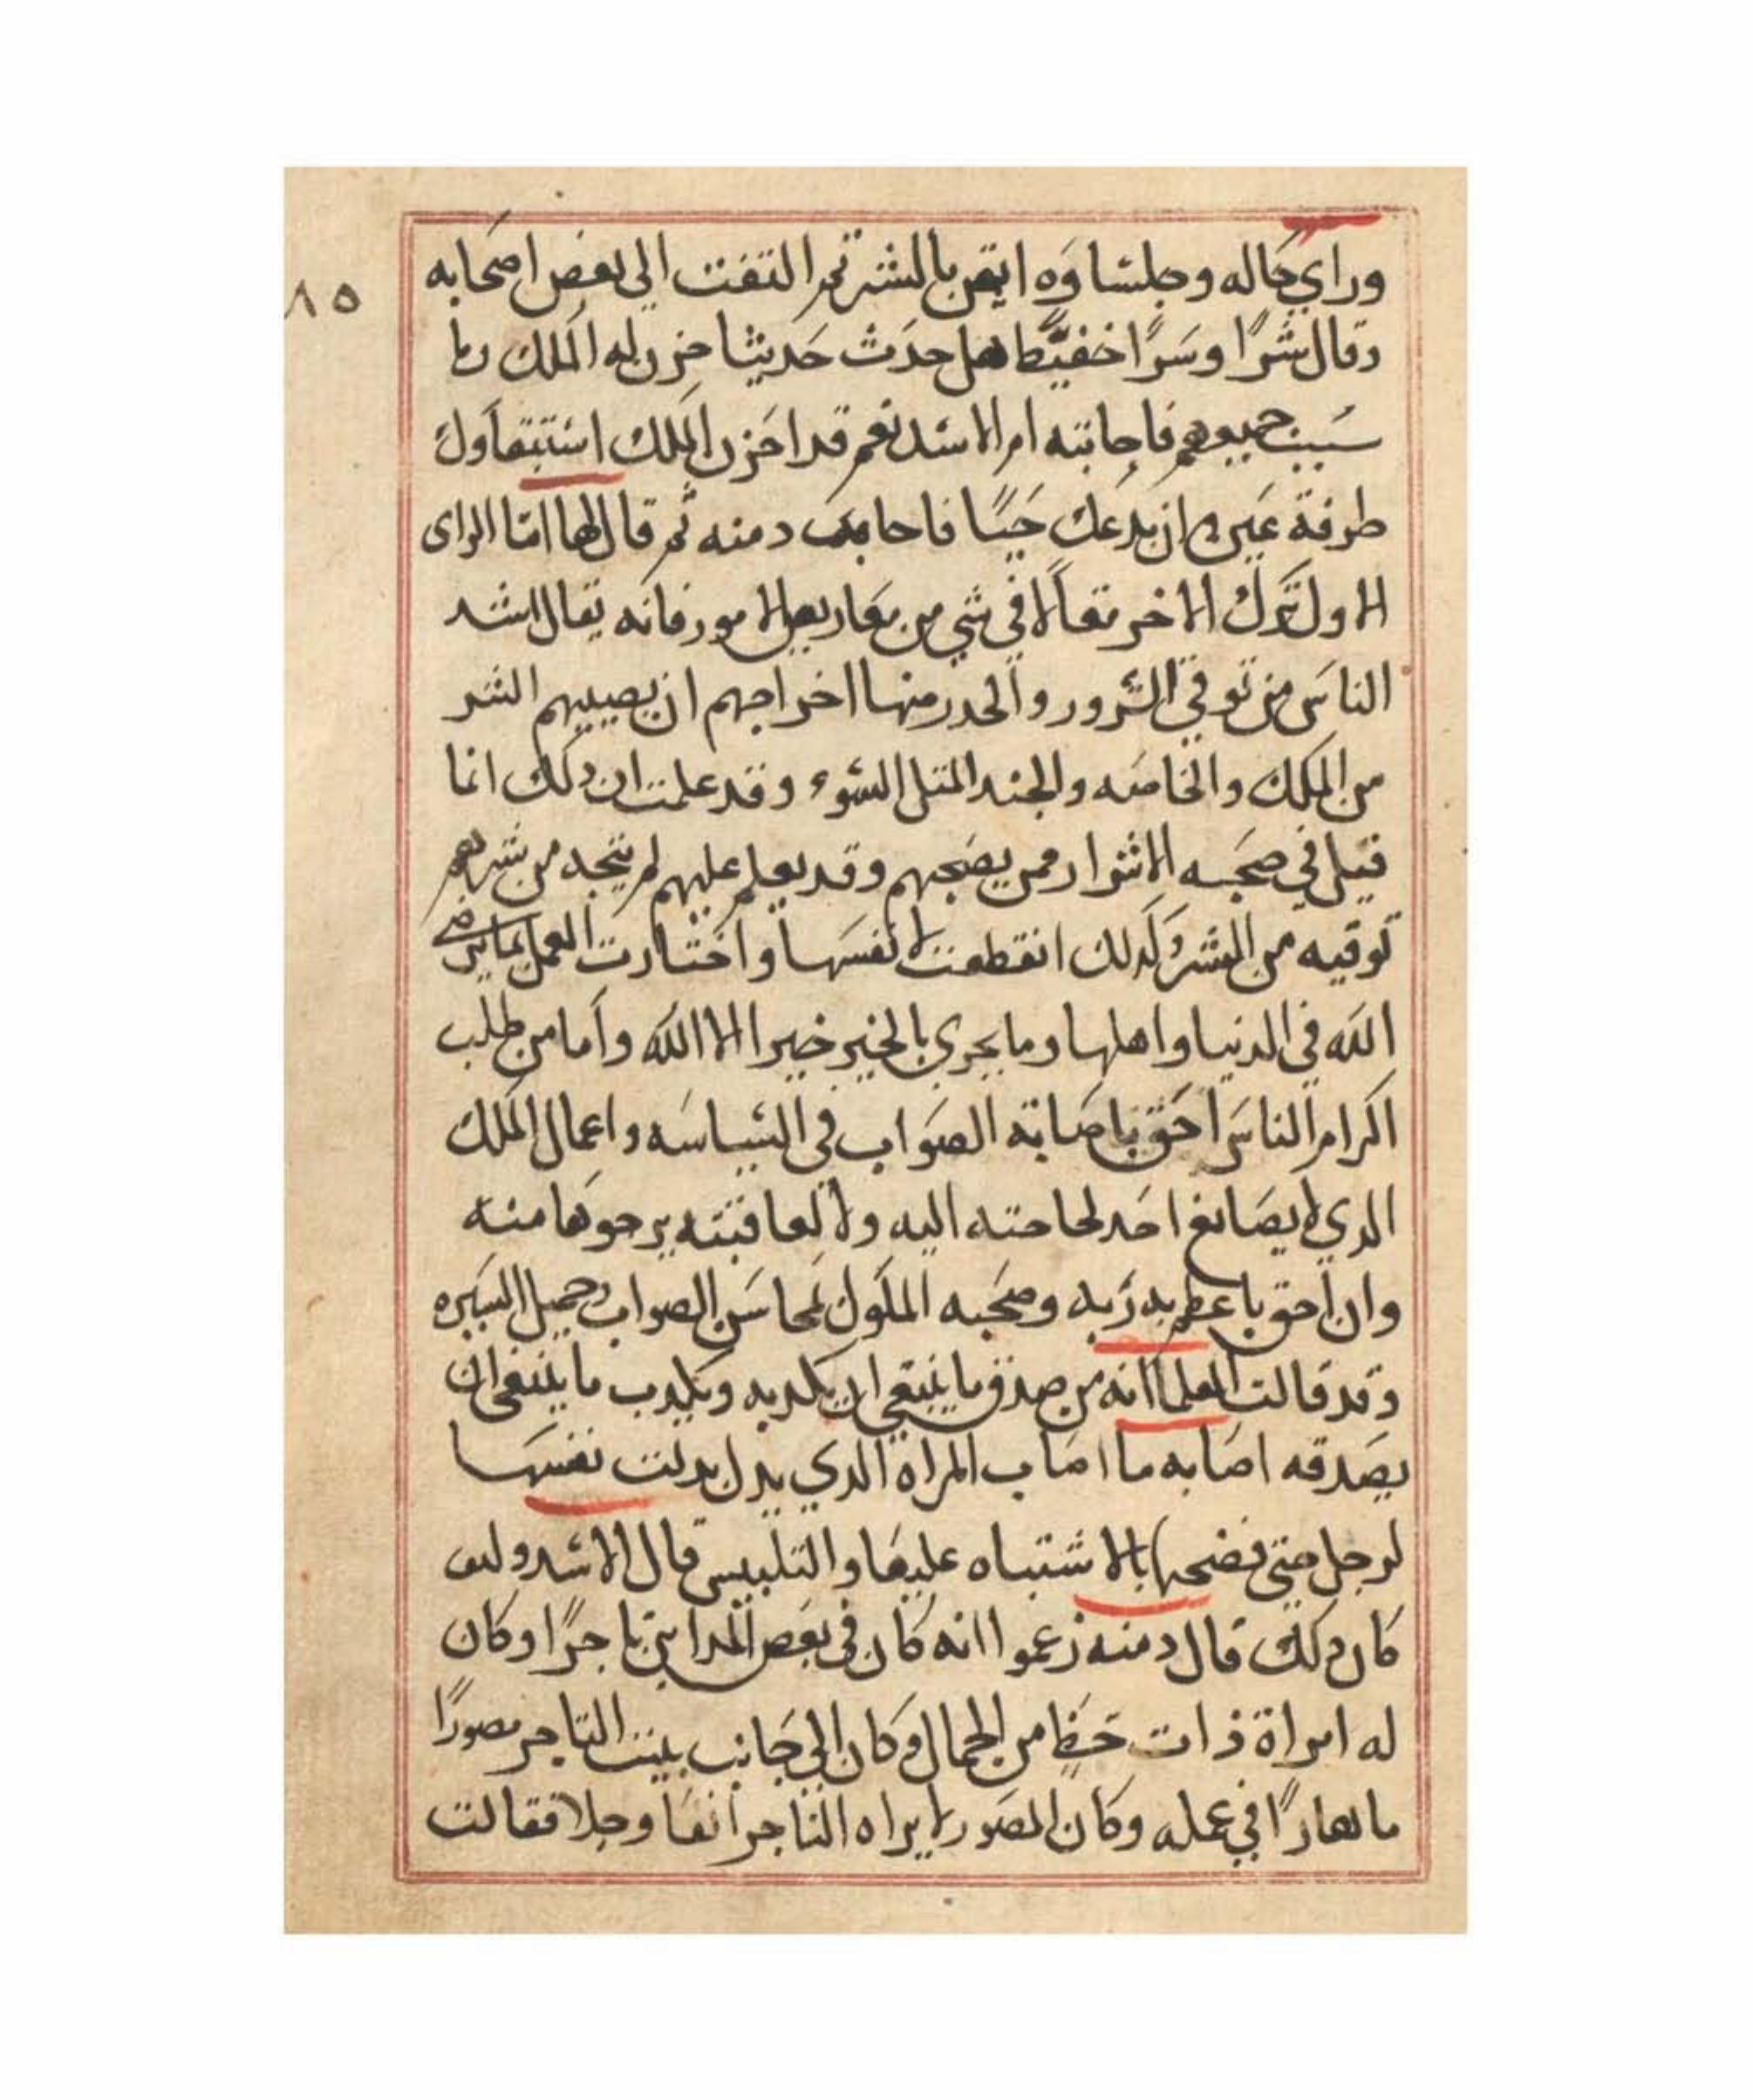 وراي حاله وجلساوه ايقن بالشر ثم التفت الي بعض اصحابه
٨٥
وقال شرًا وسرًا خفيًا هل حدث حديثا حزن له الملك
سبب جميعهم فاجابته ام الاسد نعم قد احزن الملك استبقاوك
طرفة عين ان يدعك حيًا دمنه ثم قال لها امّا الراى
الاول ترك الاخر مقالا في شي من الامور فانه يقال اشد
الناس من توقي الشرور والحدر منها اخراجهم ان يصيبهم الشر
من الملك والخاصه والجند المثل السوء وقد علمت ان دلك انما
قيل في صحبه الاشرار ممن يصحبهم وقد يعلم عليهم لم ينجه من شرهم
توقيه من الشر وكدلك انقطعت نفسها واختارت العمل بما يرضي
الله في الدنيا واهلها وما يجري بالخير خيرا الا الله واما من طلب
اكرام الناس احق باصابة الصواب في السياسه واعمال الملك
الدي لا يصانع احد لحاجته اليه ولا لعاقبته يرجوها منه
وان احق به ربه وصحبه الملوك لمحاسن الصواب وجميل السيره
وقد قالت العلما انه من صدق ما ينبغي ان يكدبه ويكدب ما ينبغي ان
يصدقه اصابه ما اصاب المراه الدي بدلت نفسها
لرجل حتى فضحها بالاشتباه عليها والتلبيس قال الاسد وليف
كان دلك قال دمنه زعموا انه كان في بعض المداين تاجرًا وكان
له امراة ذات حظا من الجمال وكان الي جانب بيت التاجر مصورًا
ماهارًا في عمله وكان المصور لا يراه التاجر انفا وجلا فقالت